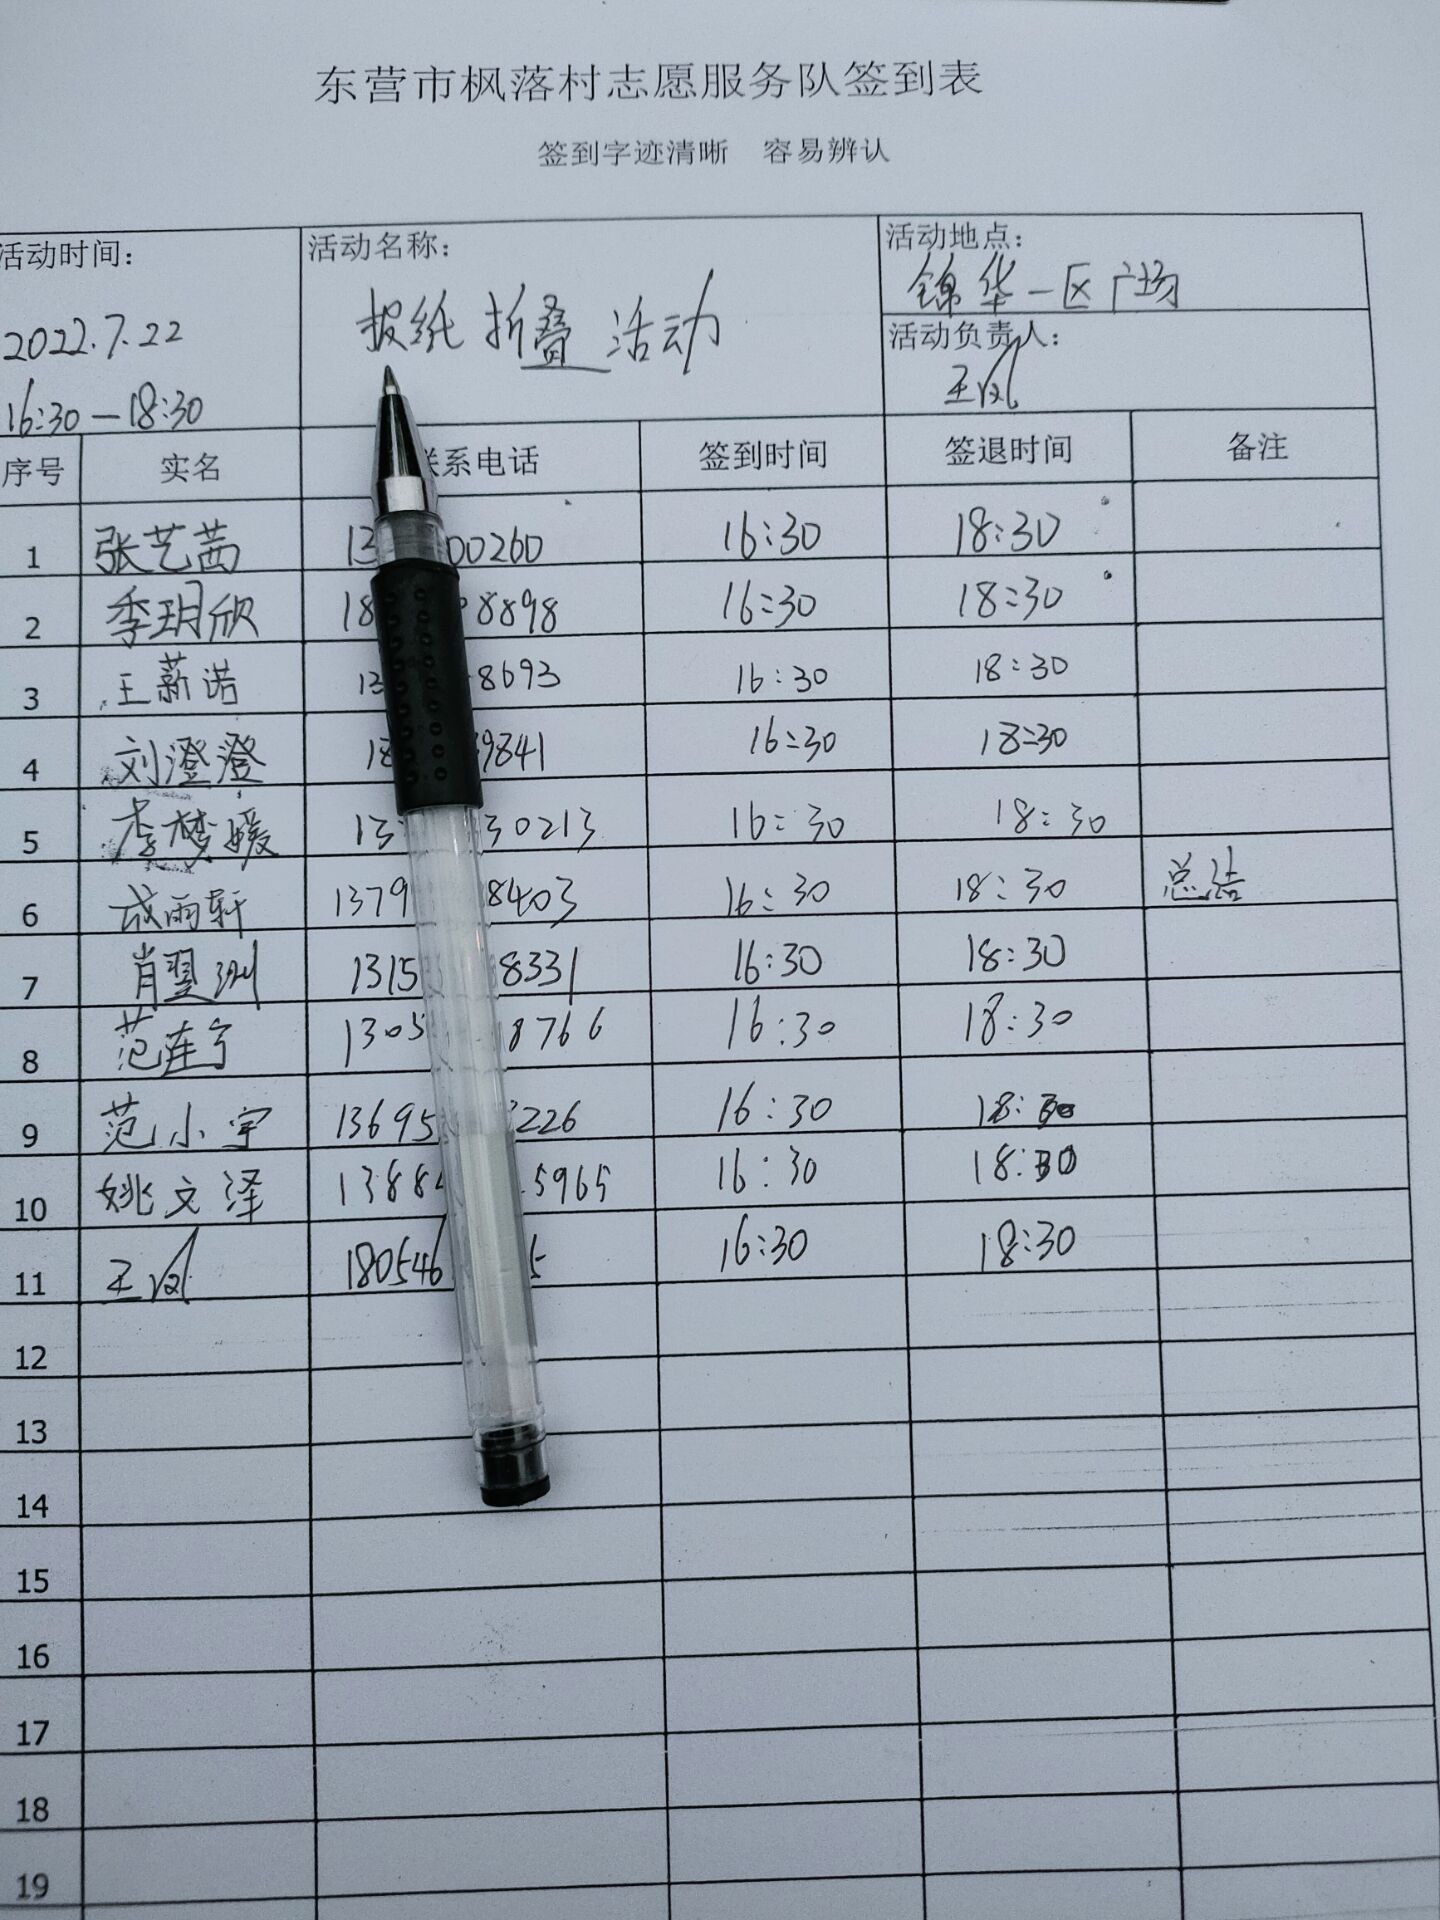 东营市枫落村志愿服务队签到表
签到字迹清晰 容易辨认
活动时间:
2022.7.22
16:30-18:30
活动名称:
报纸折叠活动
活动地点:
锦华一区广场
活动负责人:
王凤
序号 实名 联系电话 签到时间 签退时间 备注
1 张艺茜 13 00260 16:30 18:30
2 李玥欣 18 8898 16:30 18:30
3 王薪诺 13 8693 16:30 18:30
4 刘澄澄 18 9841 16:30 18:30
5 李梦媛 13 30213 16:30 18:30
6 成雨轩 1379 8403 16:30 18:30 总结
7 肖翌洲 1315 8331 16:30 18:30
8 范连宁 1305 8766 16:30 18:30
9 范小宇 13695 226 16:30 18:30
10 姚文泽 1388 5965 16:30 18:30
11 王凤 180546 5 16:30 18:30
12
13
14
15
16
17
18
19